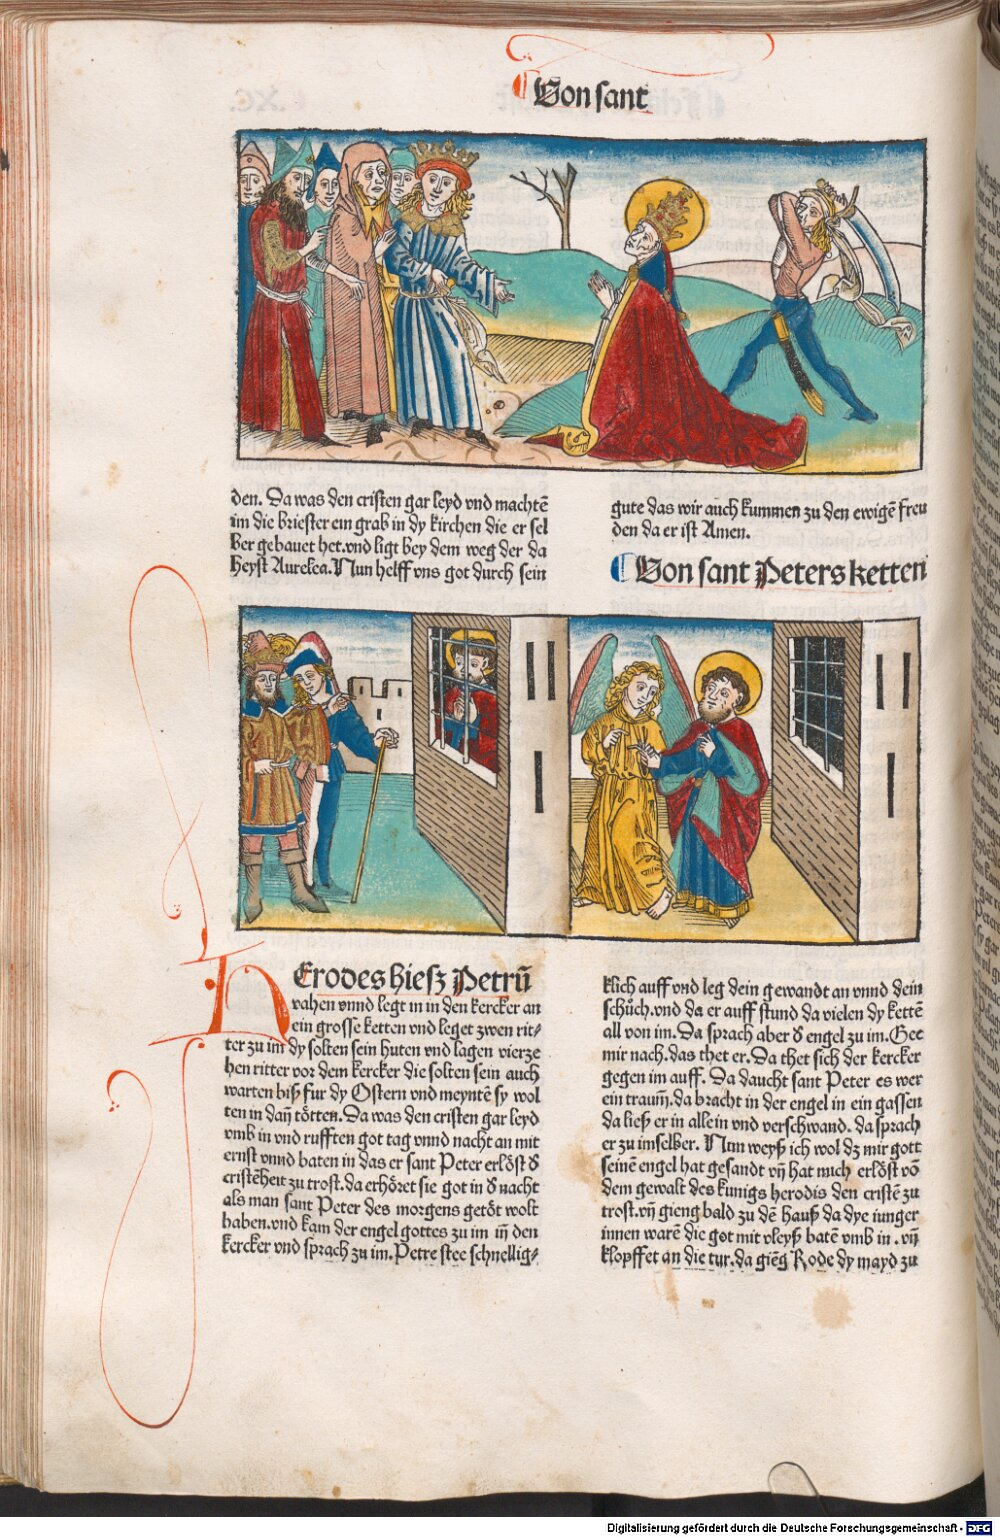 Von sant
den. Da was den cristen gar leyd vnd machtē
im die briester ein grab in dy kirchen die er sel
ber gebauet het.vnd ligt bey dem weg der da
heyst Aurelea. Nun helff vns got durch sein
gute das wir auch kummen zu den ewigē freu
den da er ist Amen.
Von sant Peters ketten
HErodes hiesz Petrū
vahen vnnd legt in in den kercker an
ein grosse ketten vnd leget zwen rit⸗
ter zu im dy solten sein huten vnd lagen vierze
hen ritter vor dem kercker die solten sein auch
warten biß fur dy Ostern vnd meyntē sy wol
ten in dañ tötten. Da was den cristen gar leyd
vmb in vnd rufften got tag vnnd nacht an mit
ernst vnnd baten in das er sant Peter erlöst d̕
cristēheit zu trost. da erhöret sie got in d̕ nacht
als man sant Peter des morgens getöt wolt
haben. vnd kam der engel gottes zu im iñ den
kercker vnd sprach zu im. Petre stee schnellig⸗
klich auff vnd leg dein gewandt an vnnd dein
schüch. vnd da er auff stund da vielen dy kettē
all von im. Da sprach aber d̕ engel zu im. Gee
mir nach. das thet er. Da thet sich der kercker
gegen im auff. Da daucht sant Peter es wer
ein traum. da bracht in der engel in ein gassen
da ließ er in allein vnd verschwand. da sprach
er zu im selber. Nun weyß ich wol dz mir gott
seinē engel hat gesandt vñ hat mich erlöst vō
dem gewalt des kunigs herodis den cristē zu
trost. vñ gieng bald zu dē hauß da dye iunger
innen warē die got mit vleyß batē vmb in. vñ
klopffet an die tur. da giēg Rode dy mayd zu
Digitalisierung gefördert durch die Deutsche Forschungsgemeinschaft - DFG